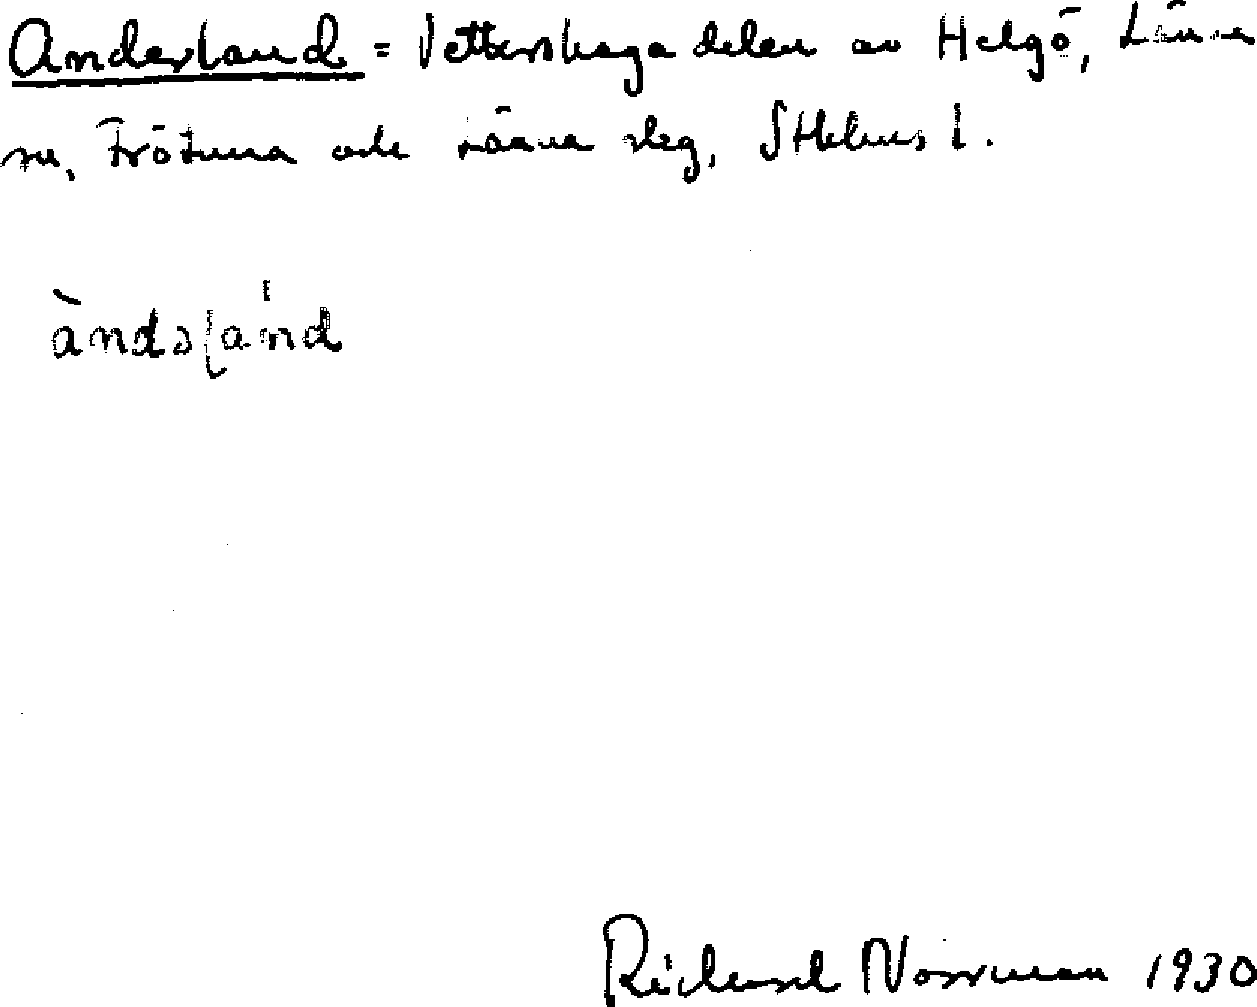 Anderland = Vettershaga delen av Helgö, Länna
sn, Frötuna och Länna slg, Sthlms l.
àndəḷánd
Richard Norrman 1930